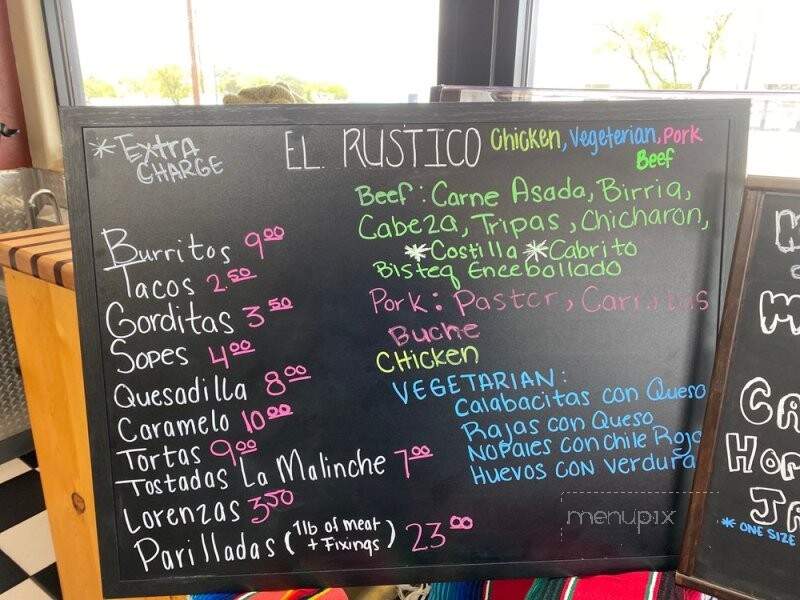 * Extra CHARGE
EL RUSTICO
Chicken, Vegeterian, Pork
Beef
Burritos 9.00
Tacos 2.50
Gorditas 3.50
Sopes 4.00
Quesadilla 8.00
Caramelo 10.00
Tortas 9.00
Tostadas La Malinche 7.00
Lorenzas 3.50
Parilladas (1lb of meat + Fixings) 23.00
Beef: Carne Asada, Birria,
Cabeza, Tripas, Chicharon,
*Costilla *Cabrito
Bisteq Encebollado
Pork: Pastor, Carnitas
Buche
CHICKEN
VEGETARIAN:
Calabacitas con Queso
Rajas con Queso
Nopales con Chile Rojo
Huevos con verdura
menupix
* ONE SIZE